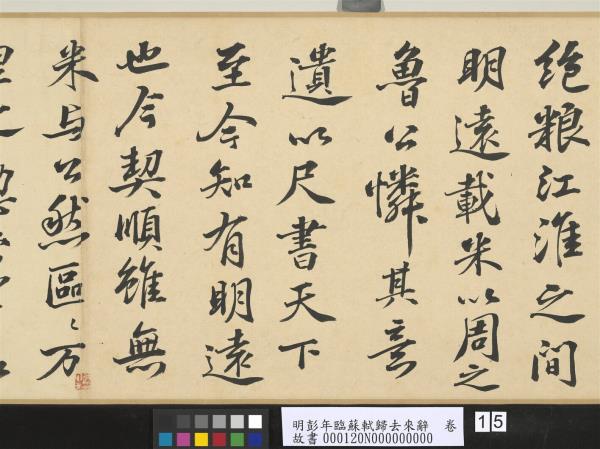 绝粮江淮之间
明遠載米以周之
魯公憐其意
遺以尺書天下
至今知有明遠
也今契順雖無
米与公然區〻万
里之
明彭年臨蘇軾歸去來辭 卷
故書 000120N000000000
15